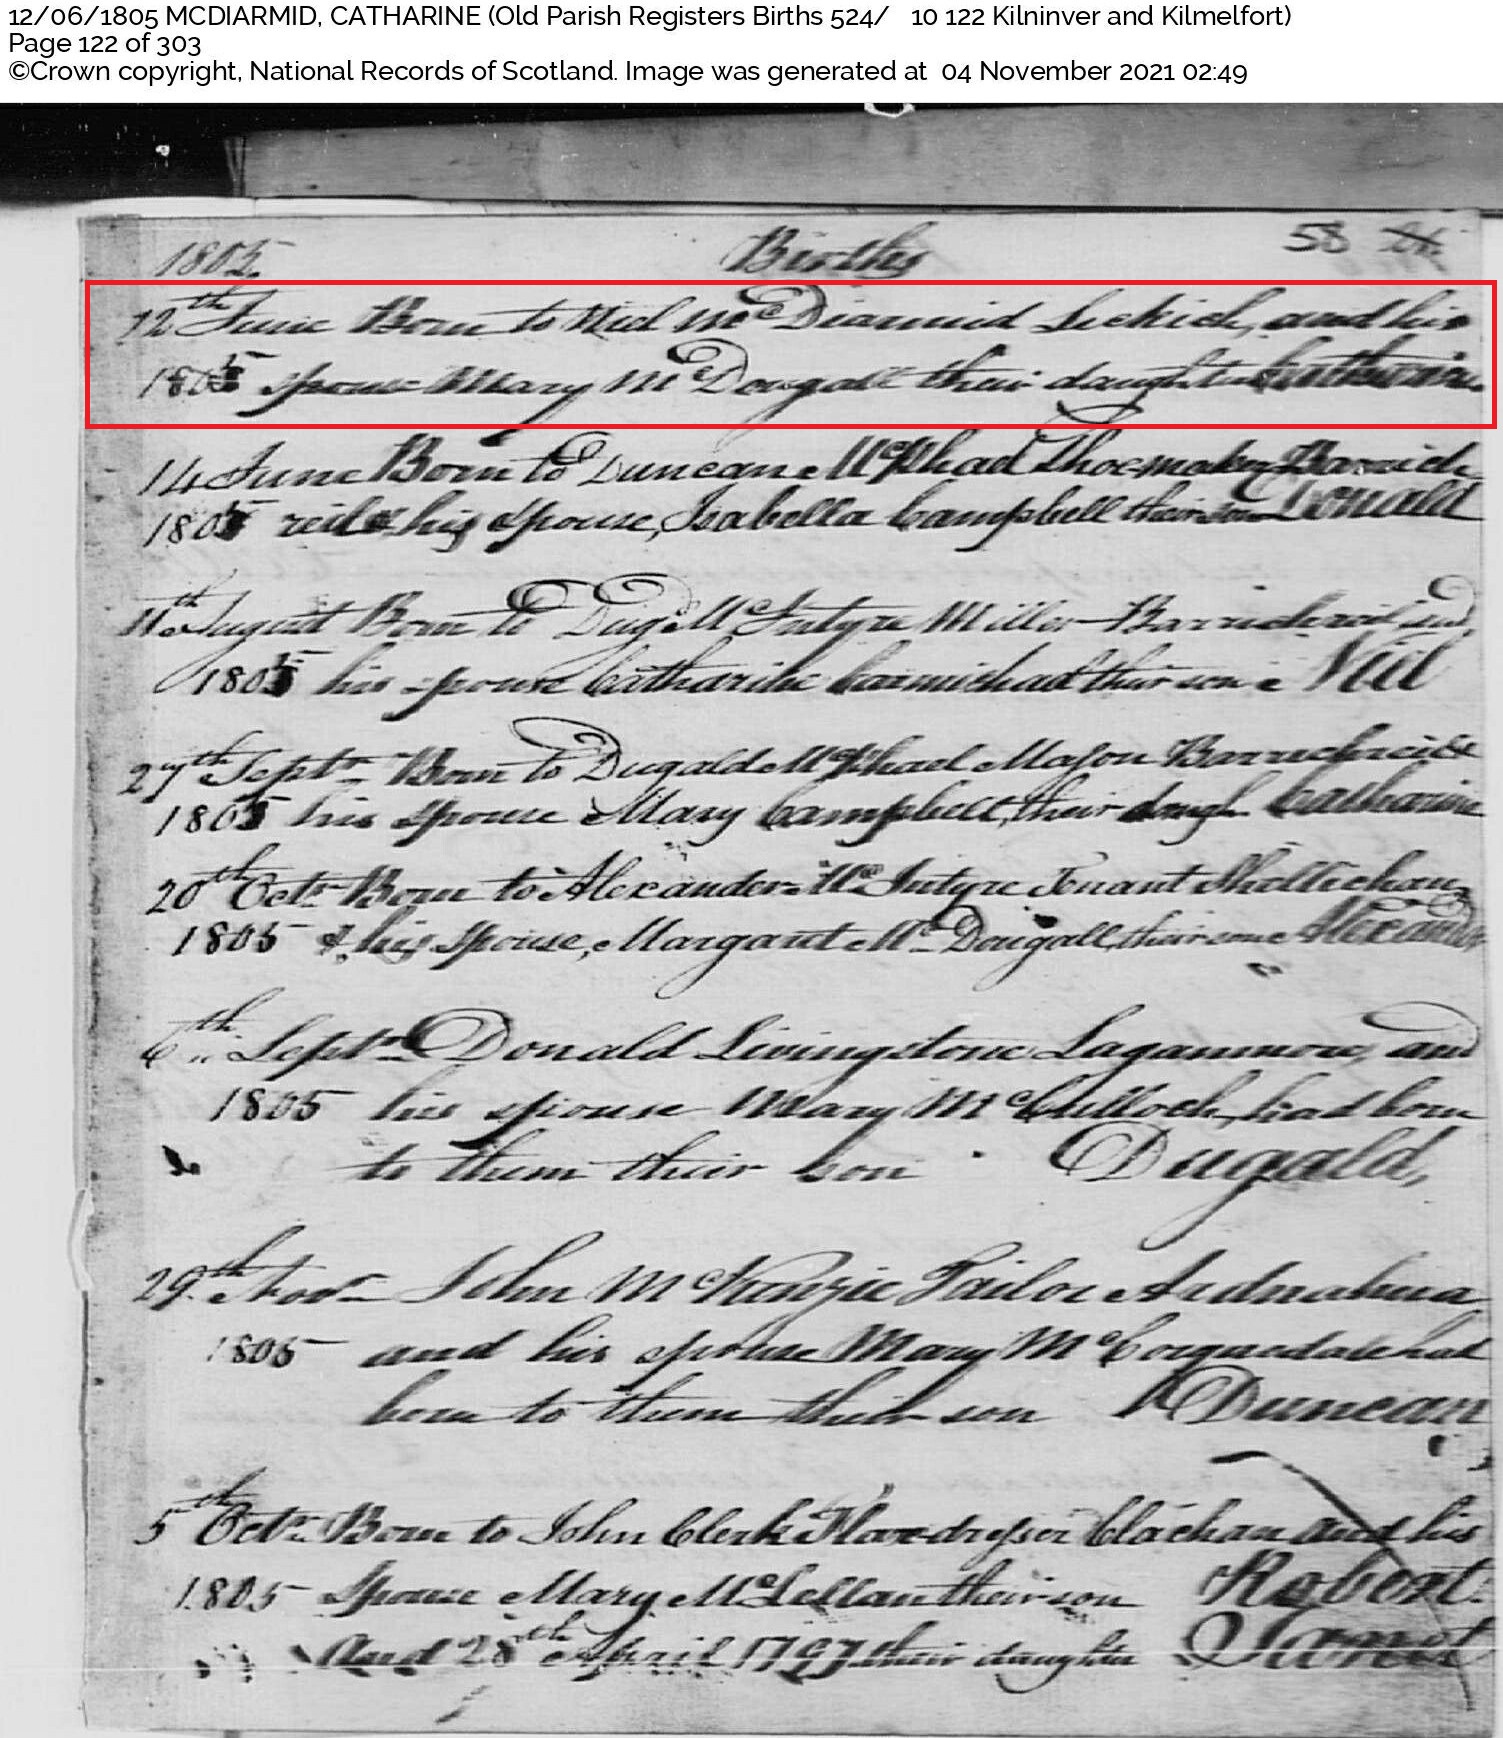 12/06/1805 MCDIARMID, CATHARINE (Old Parish Registers Births 524/ 10 122 Kilninver and Kilmelfort)
Page 122 of 303
©Crown copyright, National Records of Scotland. Image was generated at 04 November 2021 02:49
1805 Births 58
12th June Born to Niel McDiarmid and his
1805 spouse Mary McDougall their daughter Catharine
14 June Born to Duncan McPhail Shoemaker Barrich
1805 reil & his Spouse, Isabella Campbell their son Donald
11th August Born to Dug: McIntyre Miller Barrichreil and
1805 his spouse Catharine Carmichael their son Niel
27th Septr Born to Dugald McPhael Mason Barrichreil &
1805 his Spouse Mary Campbell, their daugh Catharine
20th Octr Born to Alexander McIntyre Tenant
1805 & his Spouse, Margaret McDougall, their son Alexander
6th Septr Donald Livingstone Laganmore, and
1805 his spouse Mary McCulloch, had born
to them their son Dugald,
29th Novr John McKenzie Tailor
1805 and his spouse Mary McCorquodale had
born to them their son Duncan
5th Octr Born to John Clerk Flaxdresser Clachan and his
1805 Spouse Mary McLellan their son Robert
And 28th April 1797 their daughter Janet